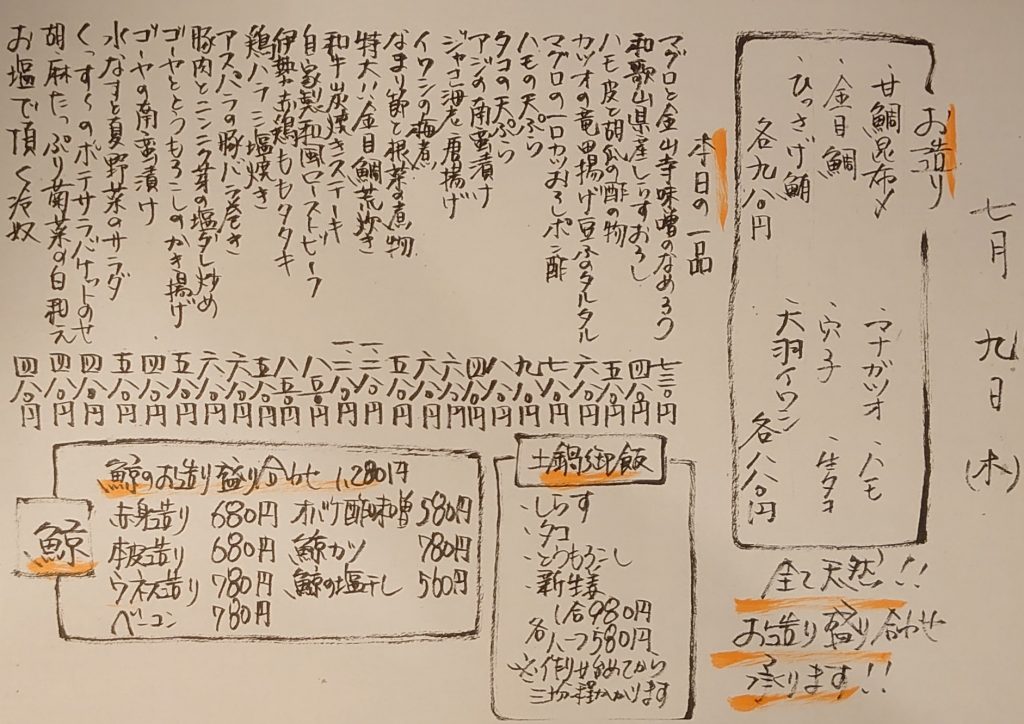 七月九日(木)
お造り
・甘鯛昆布〆
・金目鯛
・ひっさげ鮪
各九八〇円
・マナガツオ・ハモ
・穴子・生タコ
・大羽イワシ 各八八〇円
全て天然!!
お造り盛り合わせ
承ります!!
本日の一品
マグロと金山寺味噌のなめろう 七三〇円
和歌山県産しらすおろし 四八〇円
ハモ皮と胡瓜の酢の物 五八〇円
カツオの竜田揚げ豆腐のタルタル 六八〇円
マグロの一口カツおろしポン酢 七八〇円
ハモの天ぷら 九八〇円
タコの天ぷら 八八〇円
アジの南蛮漬け 四八〇円
ジャコ海老唐揚げ 六八〇円
イワシの梅煮 六八〇円
なまり節と根菜の煮物 五八〇円
特大!!金目鯛荒炊き 一二八〇円
和牛炭焼きステーキ 一二八〇円
自家製和風ローストビーフ 八五〇円
伊勢赤鶏ももタタキ 八五〇円
鶏ハラミ塩焼き 五八〇円
アスパラの豚バラ巻き 六八〇円
豚肉とニンニク芽の塩ダレ炒め 六八〇円
ゴーヤととうもろこしのかき揚げ 五八〇円
ゴーヤの南蛮漬け 四八〇円
水なすと夏野菜のサラダ 五八〇円
くっすーのポテサラバケットのせ 四八〇円
胡麻たっぷり菊菜の白和え 四八〇円
お塩で頂く冷奴 四八〇円
土鍋御飯
・しらす
・タコ
・とうもろこし
・新生姜
各 1合980円
ハーフ580円
※作り始めてから
三十分程かかります
鯨
鯨のお造り盛り合わせ 1,280円
赤身造り 680円 オバケ酢味噌 580円
本皮造り 680円 鯨カツ 780円
ウネス造り 780円 鯨の塩干し 560円
ベーコン 780円